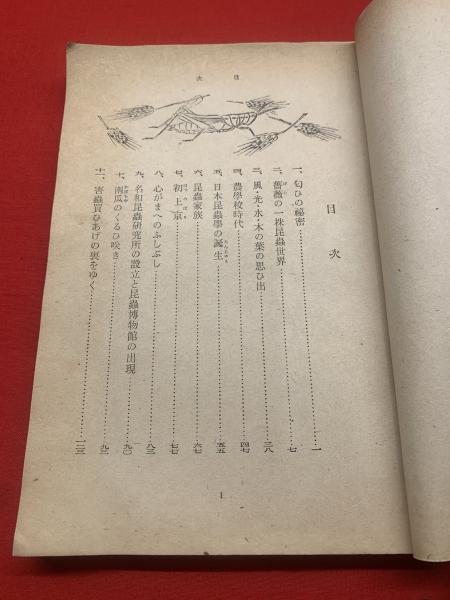 目次
目次
一、匂ひの秘密……一
二、薔薇の一株昆蟲世界……七
三、風・光・水・木の葉の思ひ出……三八
四、農學校時代……四七
五、日本昆蟲學の誕生……五五
六、昆蟲家族……六七
七、初上京……七七
八、心がまへのふしぶし……八三
九、名和昆蟲研究所の設立と昆蟲博物館の出現……九〇
十、南瓜のくるひ咲き……九三
十一、害蟲買ひあげの裏をゆく……一二三
1